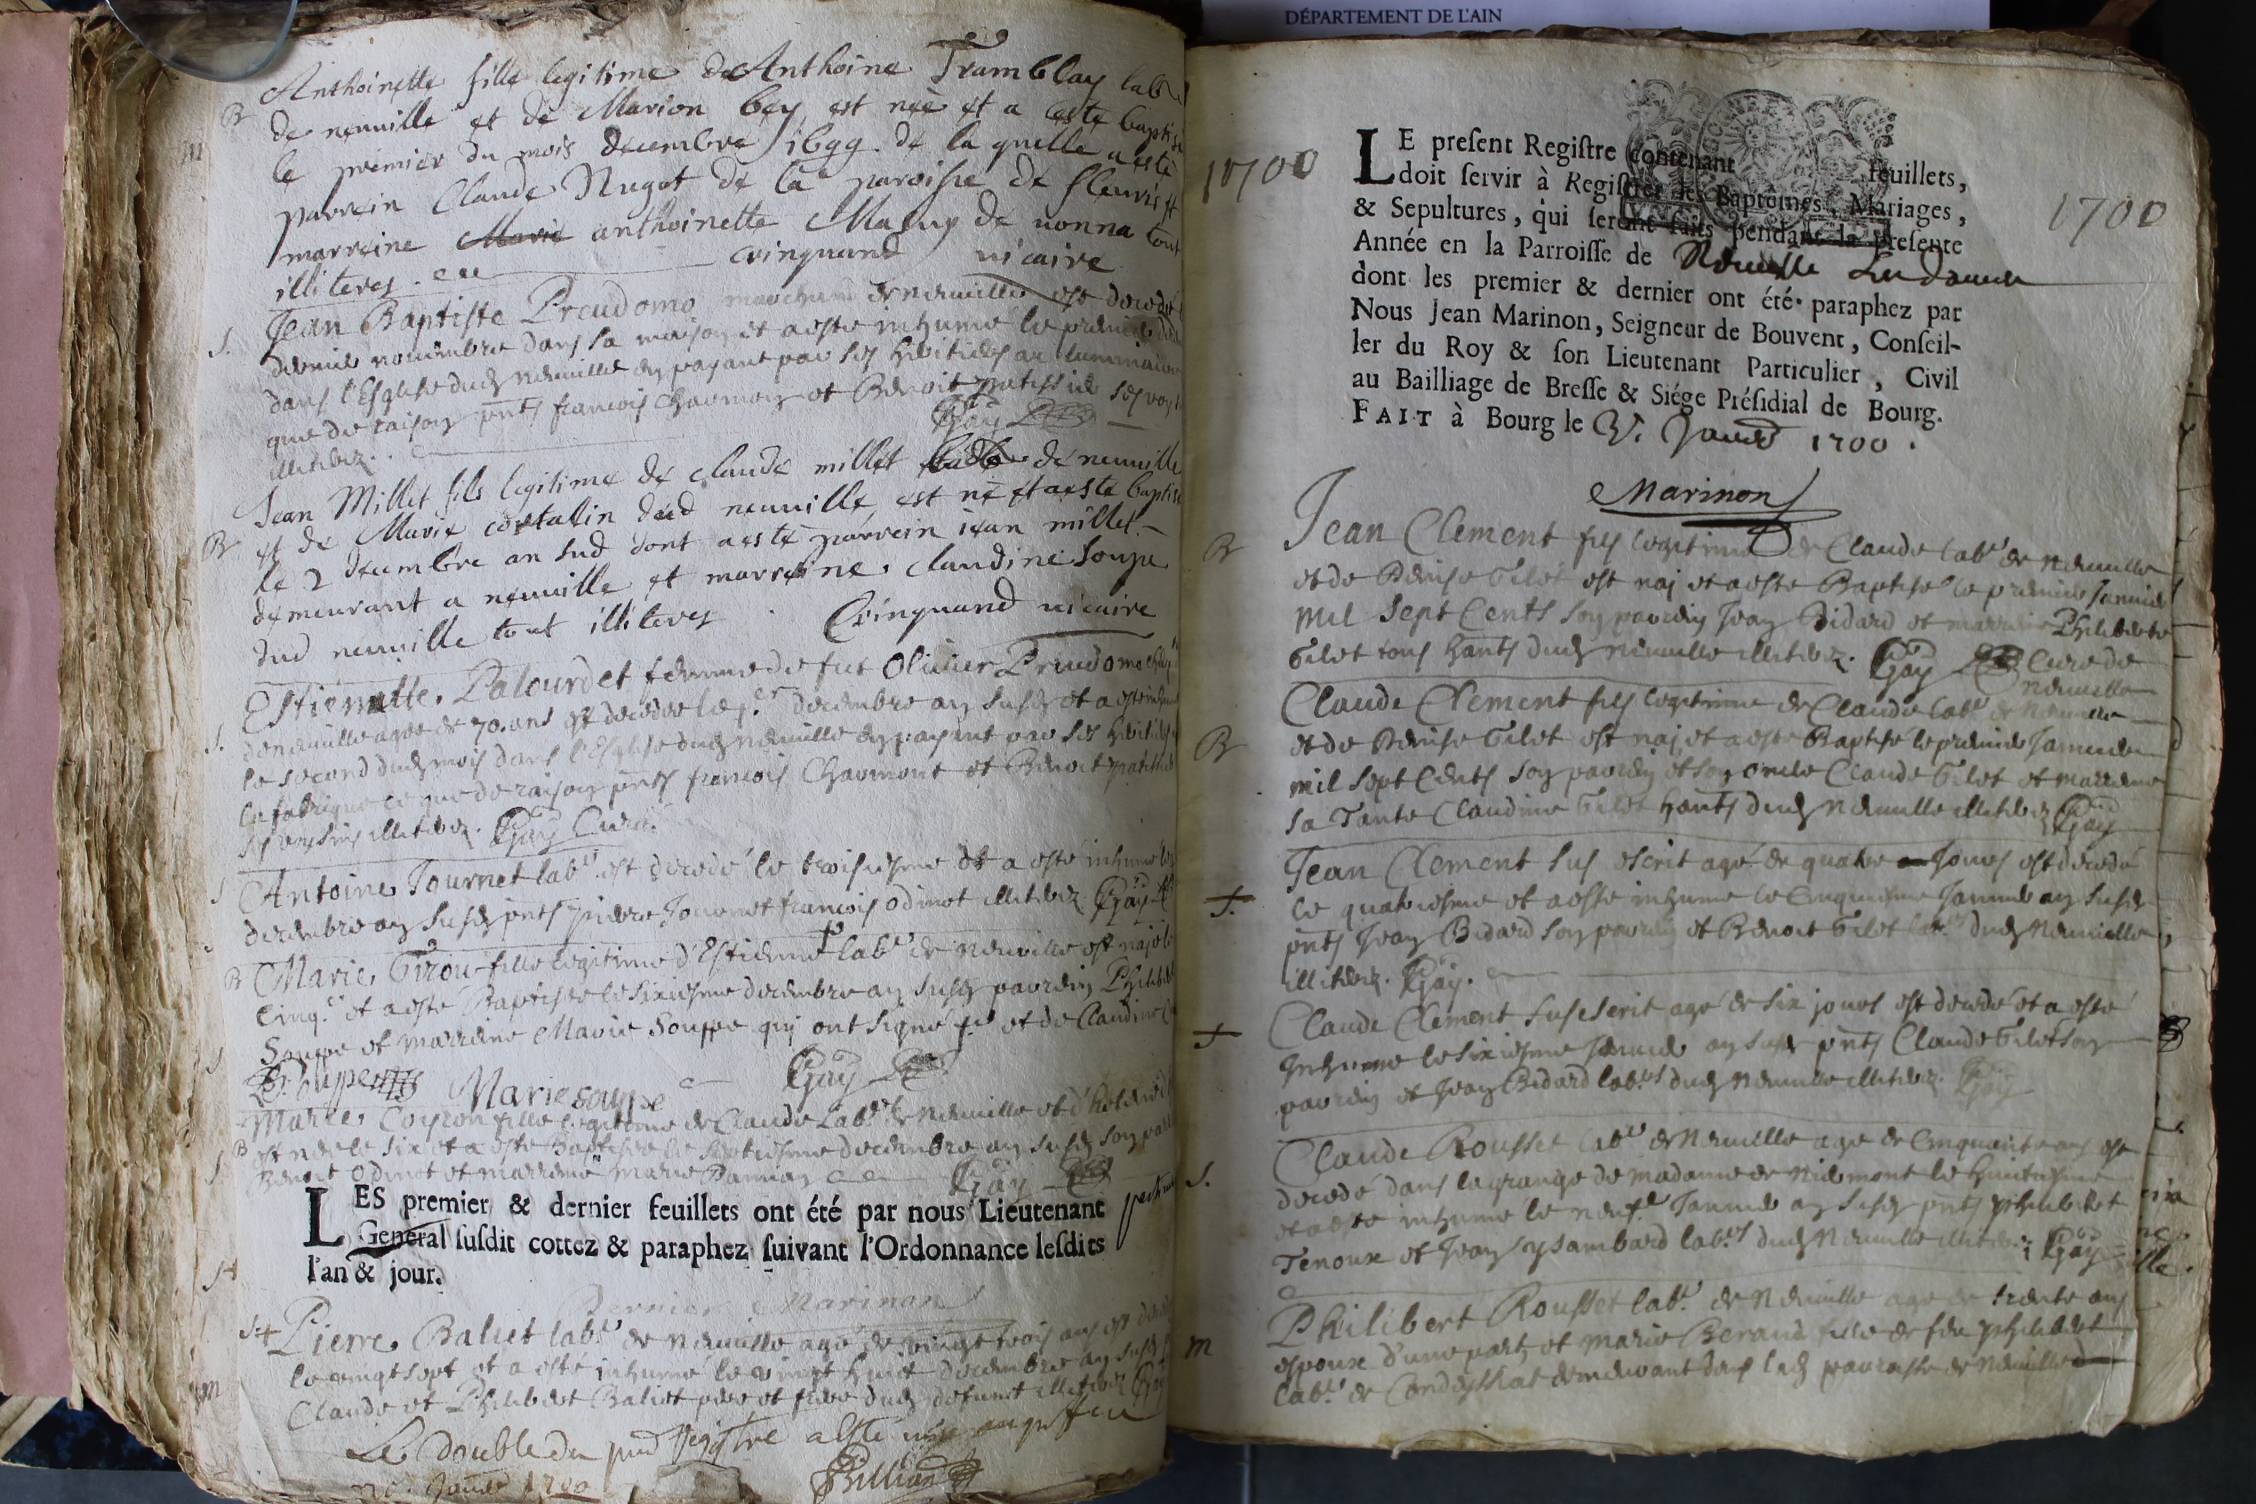 DÉPARTEMENT DE L'AIN
B
Anthoinette fille legitime de Anthoine Tramblay lab
de neuville et de Marion bey est neè et a esté baptisé
le premier du mois decembre 1699. de la quelle a esté
parrein Claude Nugot de la paroisse de fleuris et
marreine Marie anthoinette de nonna tout
illiteres. Coinquand vicaire
S.
Jean Baptiste Preudomo marchand de neuville est decedé
dernie novembre dans sa maison et a esté inhumé le premie
dans l'Esglise dud neuville en payant par ses heritiers au luminaire
que de raison pnts francois Chaumon et Benoit ses
illiterez. Gay
Jean Millet fils legitime de claude millet de neuville
B
et de Marie costalin dud neuville est né et a esté baptisé
le 2 decembre an sud dont a esté parrein iean millet
demeurant a neuville et marreine claudine soupe
dud neuville tout illiteres Coinquand vicaire
Estiennette Palourdet femme de fut Olivier Preudomo
S.
de neuville agee de 70. ans est decedee le pr decembre an susd et a esté
le second dud mois dans l'Esglise dud neuville en payant par ses heritiers
la fabrique ce que de raison pnts francois Chaumont et Benoit
ses voisins illiterez. Gay Curé.
S
Antoine Journet labr est decedé le troisiesme et a esté inhumé
decembre an susd pnts pierre Journet francois Odinot illiterez Gay
B
Marie Girou fille legitime d'Estienne labr de Neuville est
cinq.e et a esté Baptisee le sixiesme decembre an susd parrein Philibert
Souppe et marreine Marie Souppe qui ont signé et de Claudine
Marie souppe Gay
Marie Coyron fille legitime de Claude labr de Neuville et
B
est nee le six et a esté Baptisee le septiesme decembre an susd son
Benoit Odinot et marreine Marie Gay
LES premier & dernier feuillets ont été par nous Lieutenant
General susdit cottez & paraphez suivant l'Ordonnance lesdits
l'an & jour.
Marinon
S+
Pierre Baliet labr de Neuville agé de vingt trois ans est
le vingt sept et a esté inhumé le vingt huit decembre an susd
Claude et Philibert Baliet pere et frere dud defunt illiterez Gay
Le double du pnt registre a esté au greffe
Janvier 1700
1700
LE present Registre contenant feuillets,
doit servir à Registrer les Baptêmes, Mariages,
& Sepultures, qui seront faits pendant la presente
Année en la Parroisse de Neuville
dont les premier & dernier ont été paraphez par
Nous Jean Marinon, Seigneur de Bouvent, Conseil-
ler du Roy & son Lieutenant Particulier, Civil
au Bailliage de Bresse & Siége Présidial de Bourg.
FAIT à Bourg le Janvier 1700.
1700
Marinon
B
Jean Clement fils legitime de Claude labr de Neuville
et de Denise Gilet est naj et a esté Baptisé le premie Janvie
mil sept Cents son parrein Jean Bidard et marreine Philiberte
Gilet tous hants dud Neuville illiterez. Gay Curé de
neuville
Claude Clement fils legitime de Claude labr de Neuville
B
et de Denise Gilet est naj et a esté Baptisé le premie Janvier
mil sept Cents son parrein et son oncle Claude Gilet et marreine
sa Tante Claudine Gilet hants dud Neuville illiterez Gay
Jean Clement sus escrit agé de quatre Jours est decedé
S.
le quatriesme et a esté inhumé le Cinquiesme Janvie an susd
pnts Jean Bidard son parrein et Benoit Gilet labrs dud Neuville
illiterez. Gay.
Claude Clement susescrit agé de six jours est decedé et a esté
Inhumé le sixiesme Janvie an susd pnts Claude Gilet son
parrein et Jean Bidard labrs dud Neuville illiterez. Gay
Claude Rousset labr de Neuville agé de Cinquante ans est
S.
decedé dans la grange de madame de le huitiesme
et a esté inhumé le neufe Janvie an susd pnts Philibert
Tenoux et Jean ysambard labrs dud Neuville illiterez Gay
Philibert Rousset labr de Neuville agé de trente ans
m
espoux d'une part, et marie Beraud fille de feu Philibert
labr de Condeyssiat demeurant dans lad parroisse de Neuville